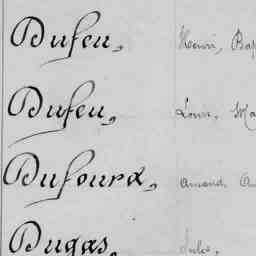 Dufeu, Henri, Bap
Dufeu, Louis, Ma
Dufourd, Amand, Au
Dugas, Jules,